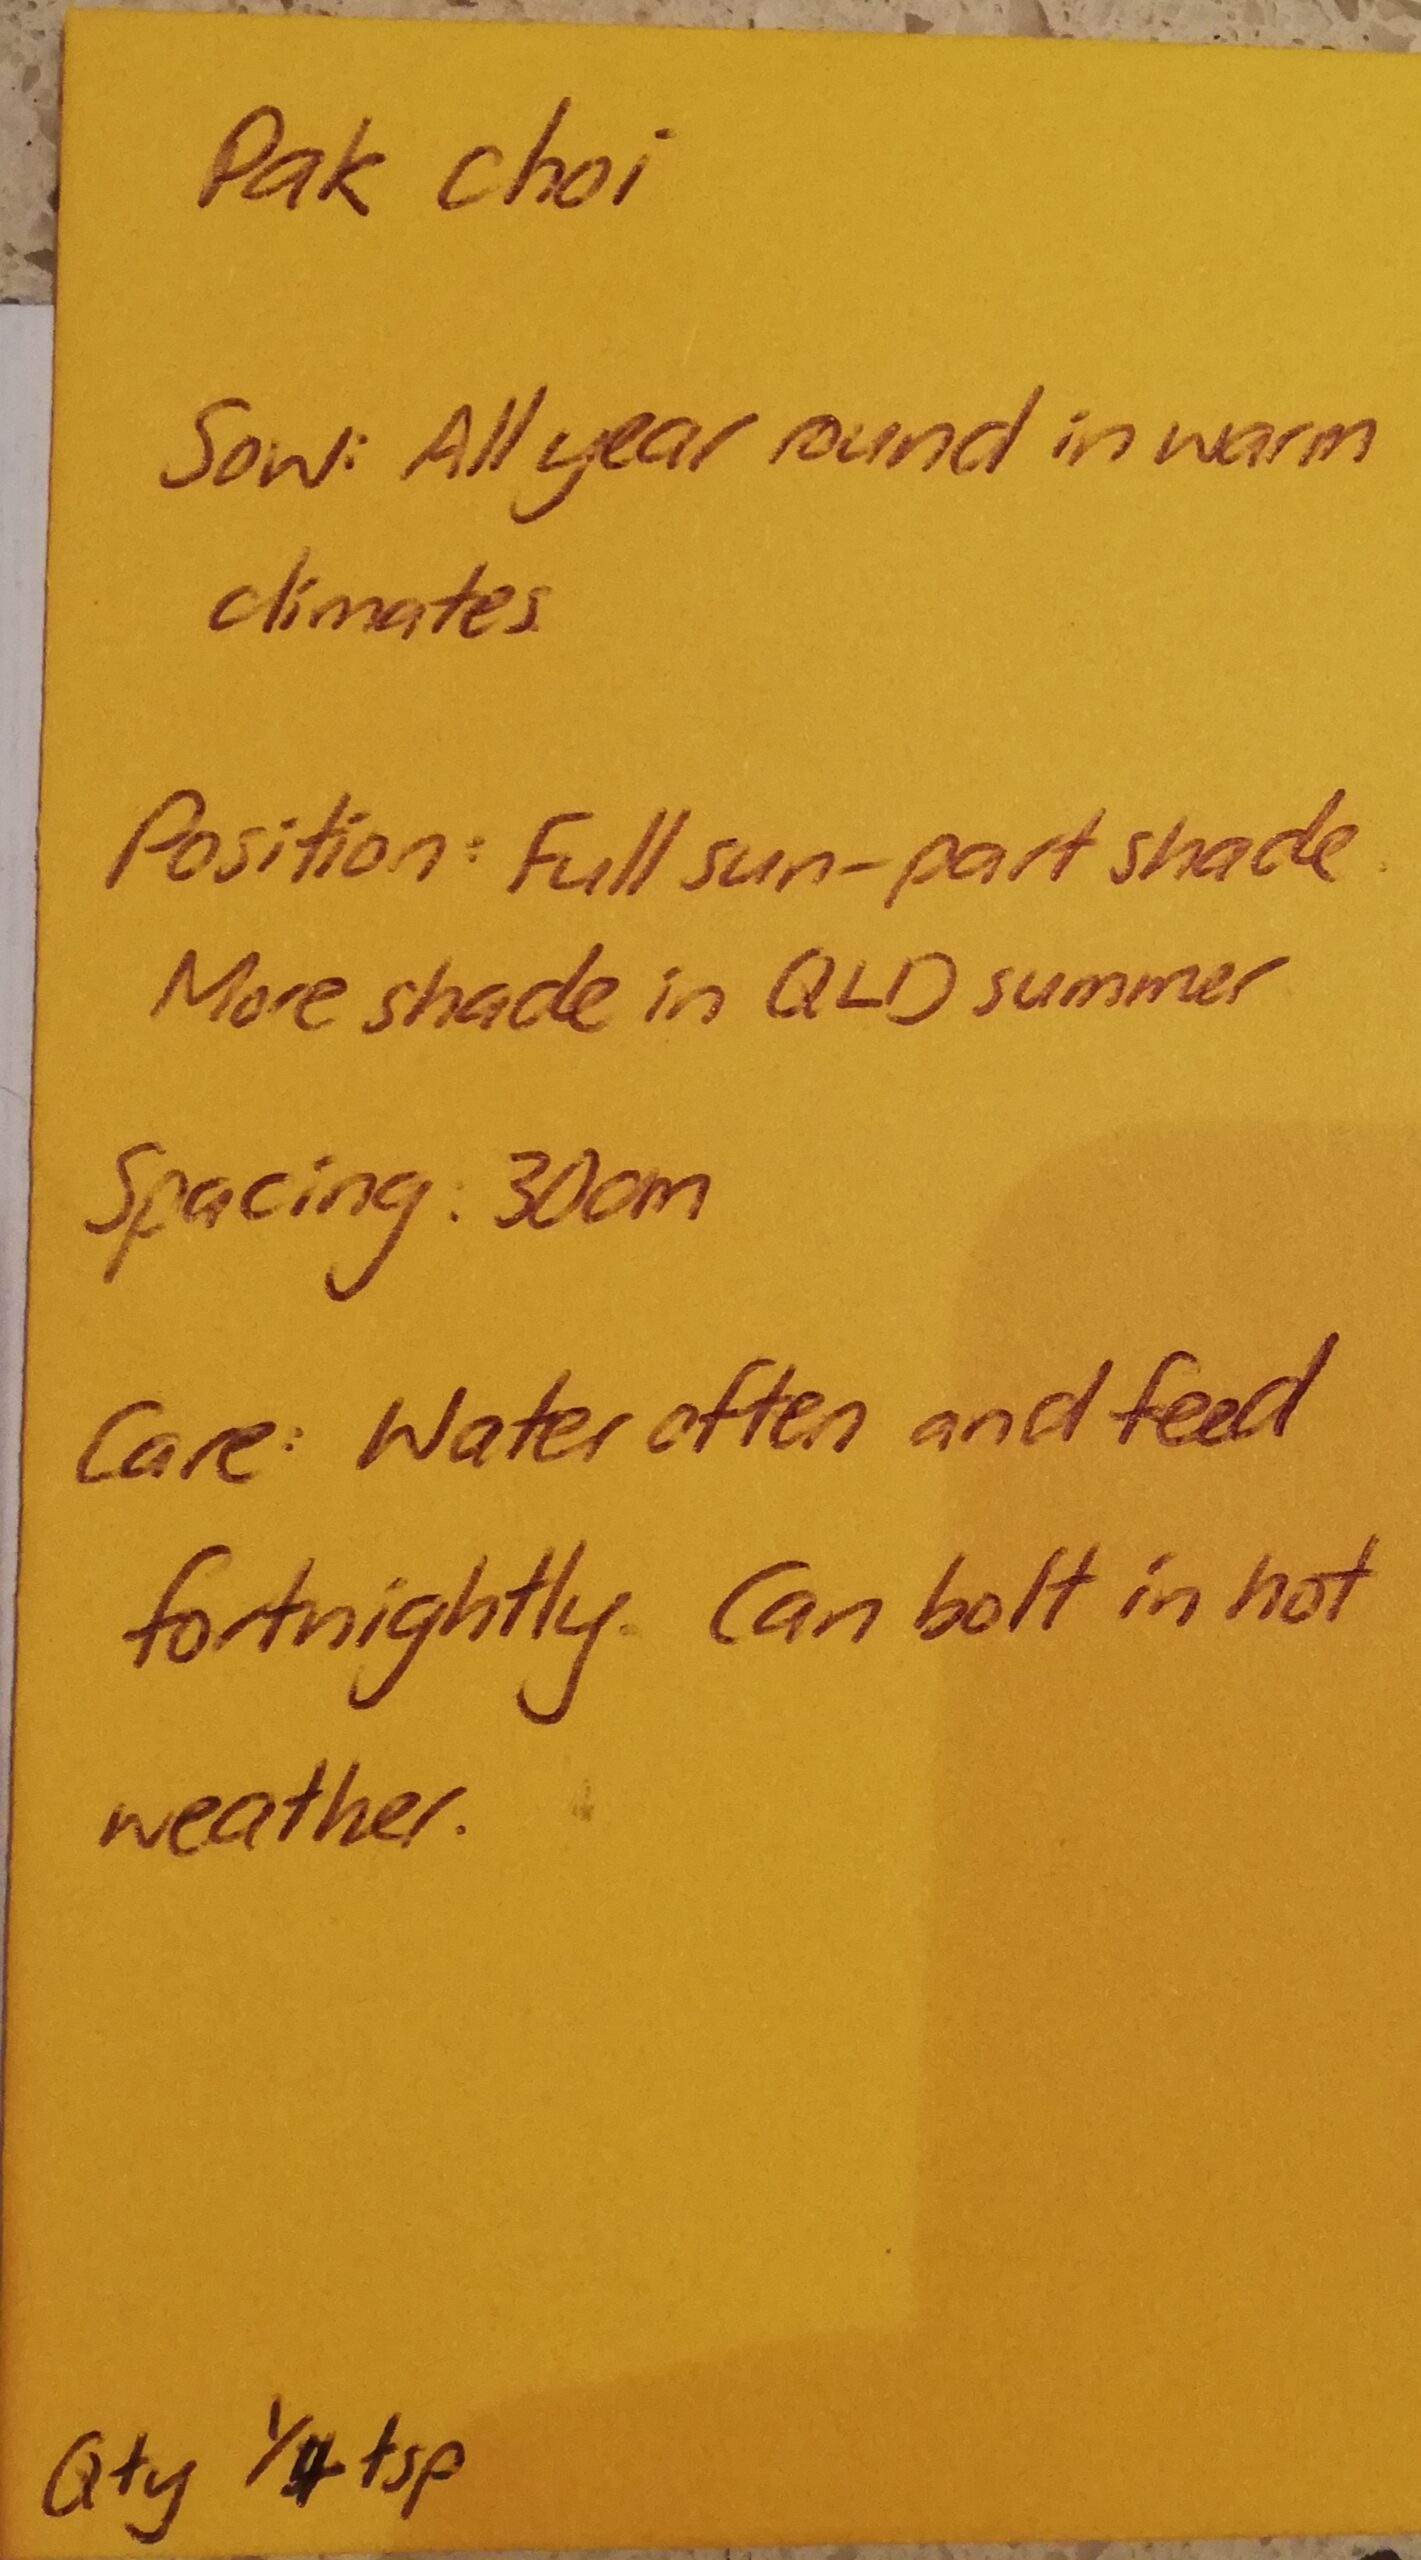 Pak choi
Sow: All year round in warm
climates
Position: Full sun-part shade.
More shade in QLD summer
Spacing: 30cm
Care: Water often and feed
fortnightly. Can bolt in hot
weather.
Qty 1/4 tsp